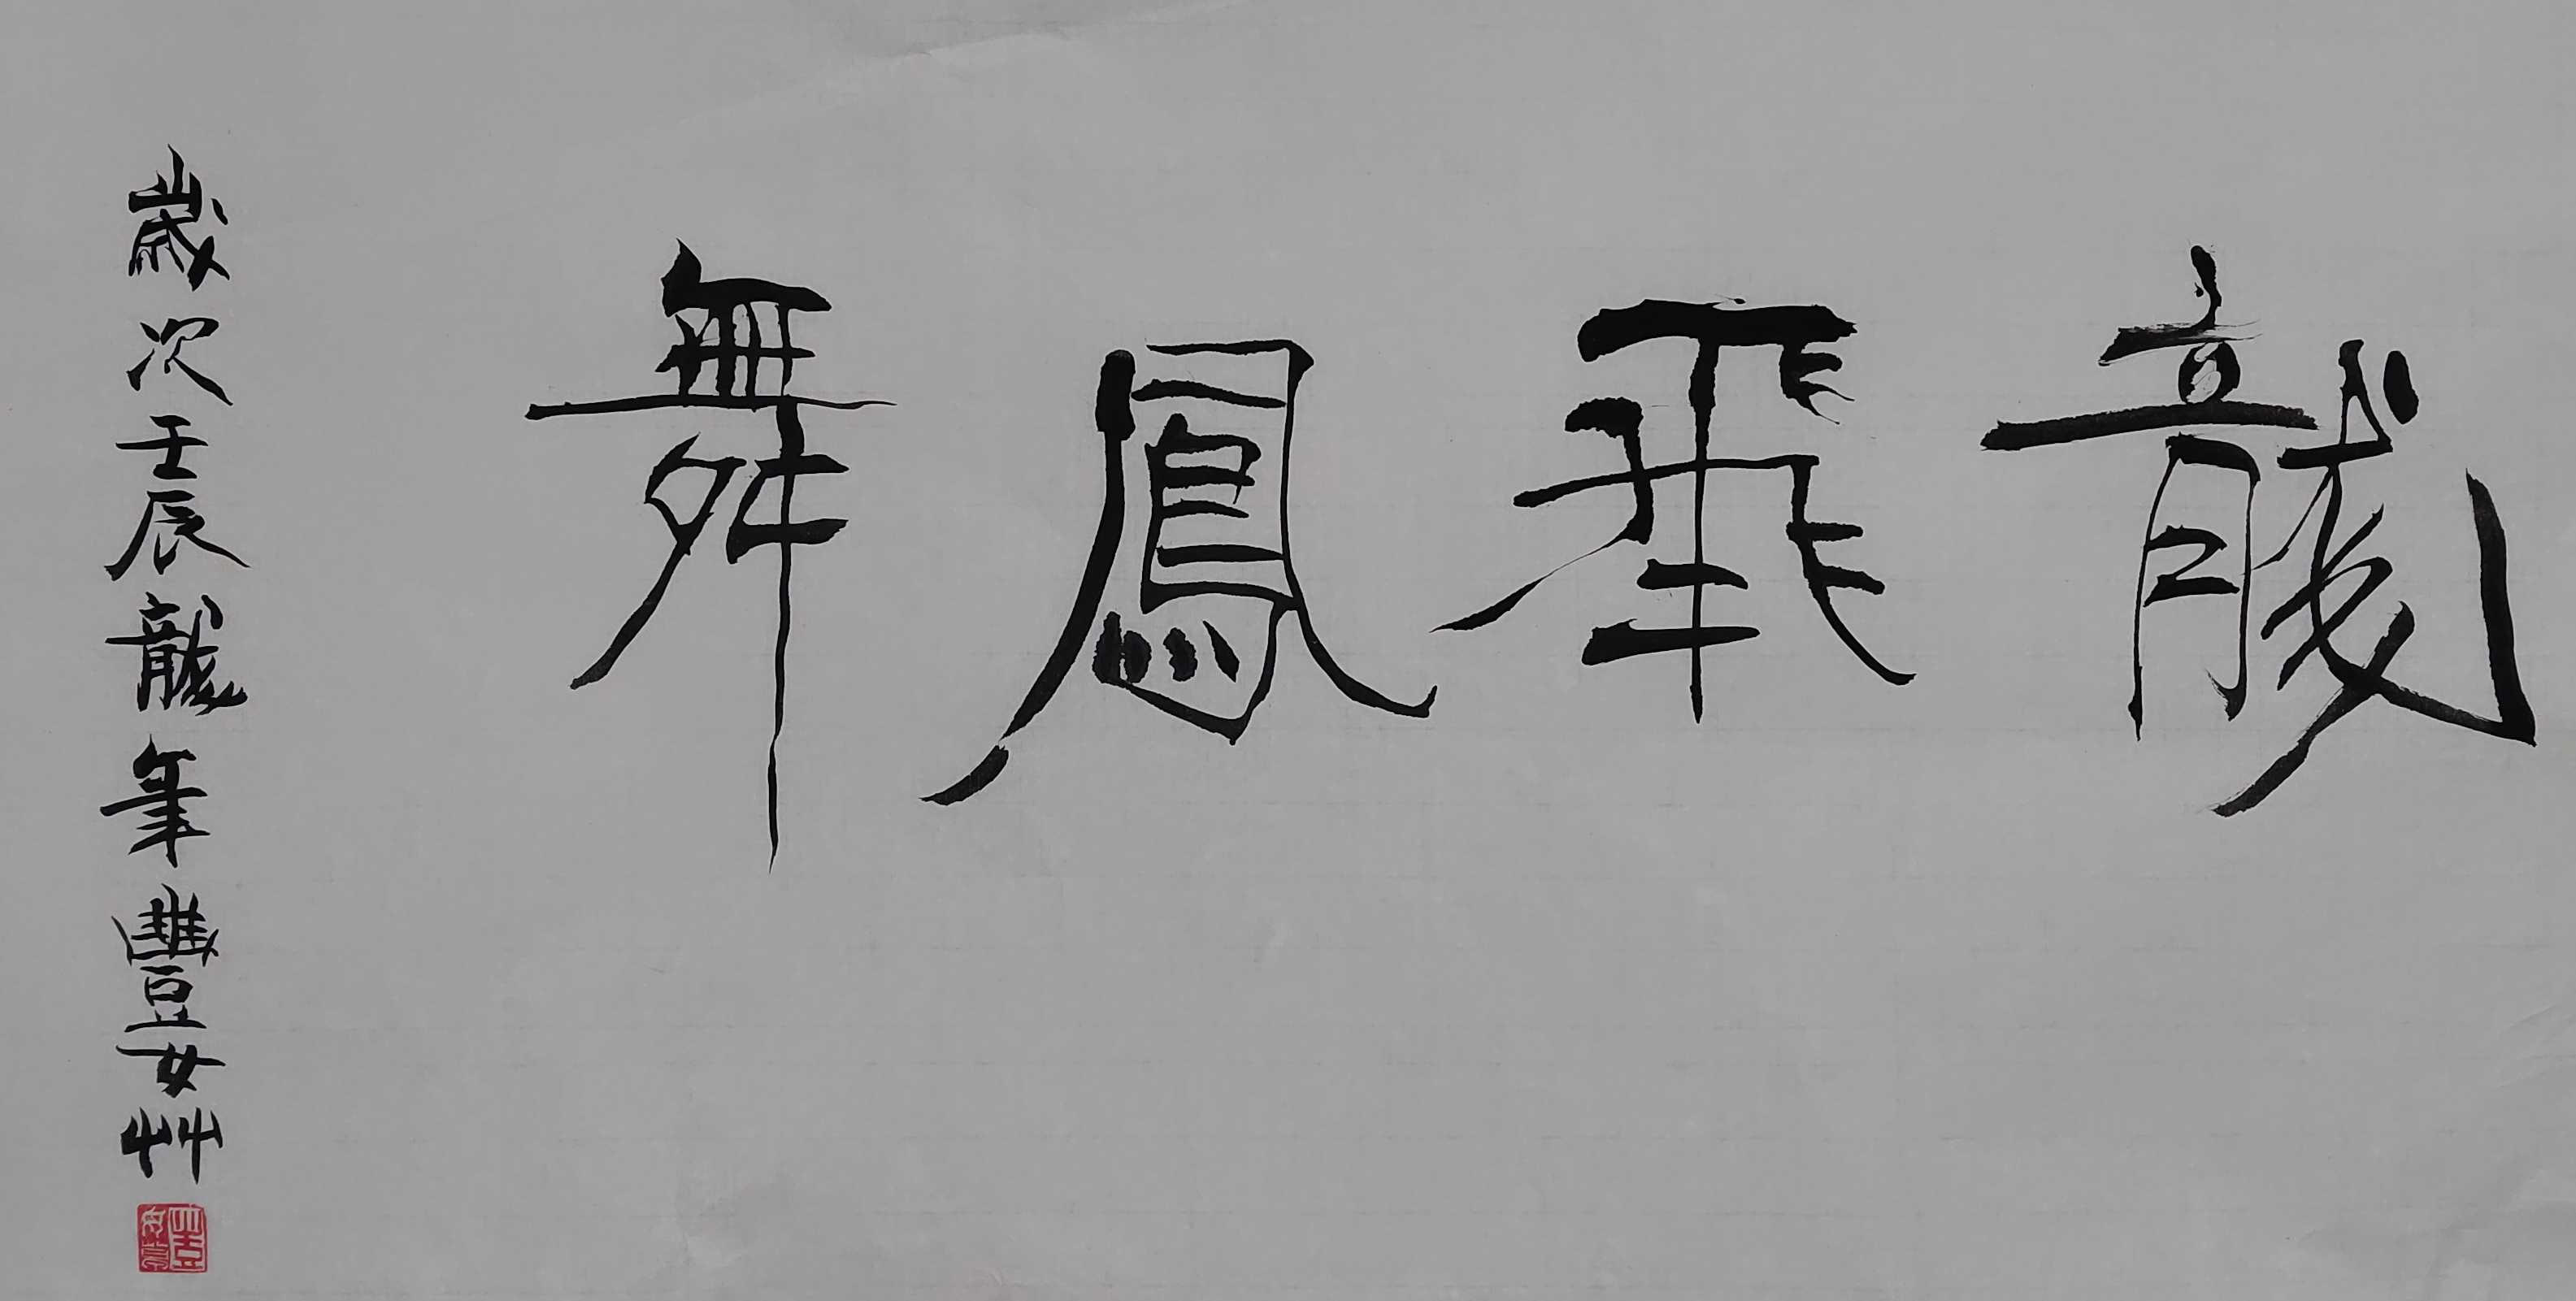 龍飛鳳舞
歲次壬辰龍年豐女艸